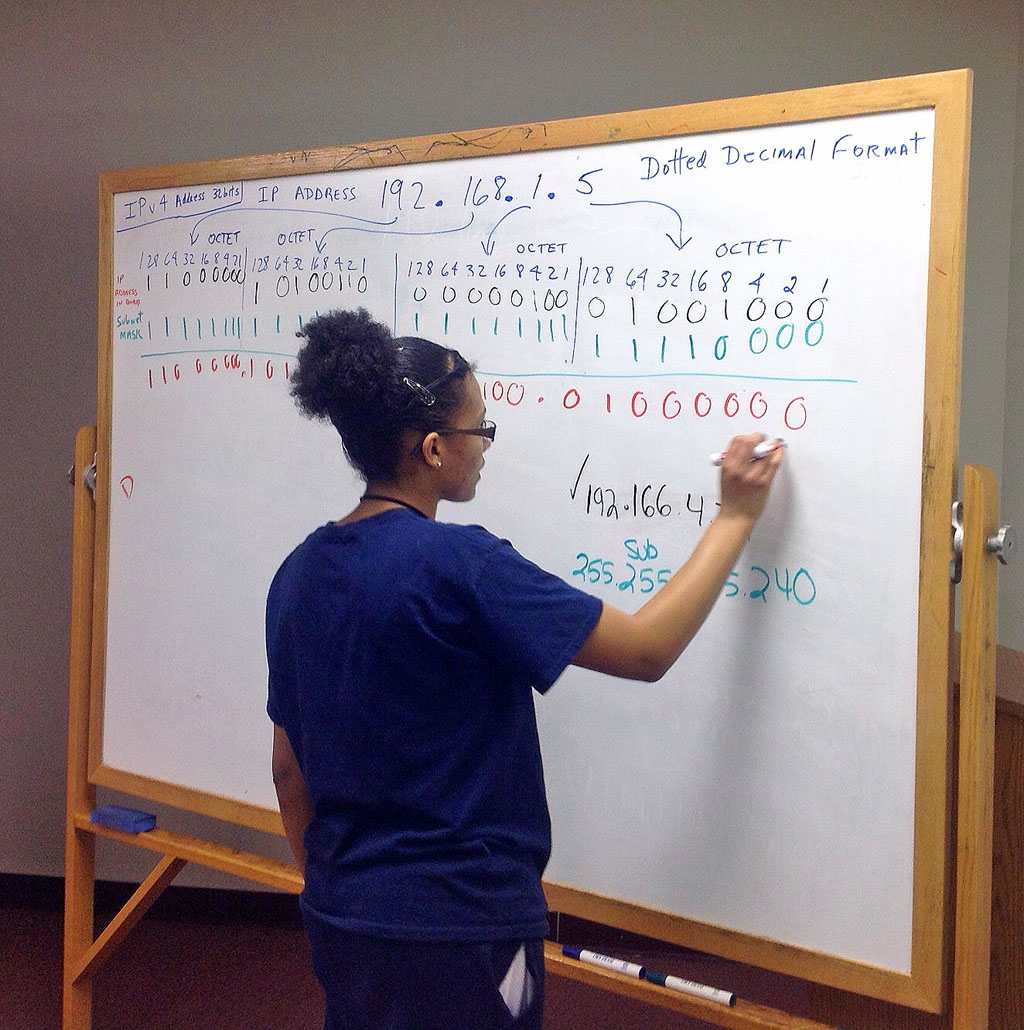 IPv4 Address 32bits IP ADDRESS 192.168.1.5 Dotted Decimal Format
OCTET OCTET OCTET OCTET
128 64 32 16 8 4 2 1 128 64 32 16 8 4 2 1 128 64 32 16 8 4 2 1 128 64 32 16 8 4 2 1
IP ADDRESS 1 1 0 0 0 0 0 0 1 0 1 0 0 1 1 0 0 0 0 0 0 1 0 0 0 1 0 0 1 0 0 0
Subnet MASK 1 1 1 1 1 1 1 1 1 1 1 1 1 1 1 1 1 1 1 1 1 1 0 0 0 0
1 1 0 0 0 0 0 0 . 1 0 1 1 0 0 . 0 1 0 0 0 0 0 0
✓192.166.4.
Sub
255.255 5.240